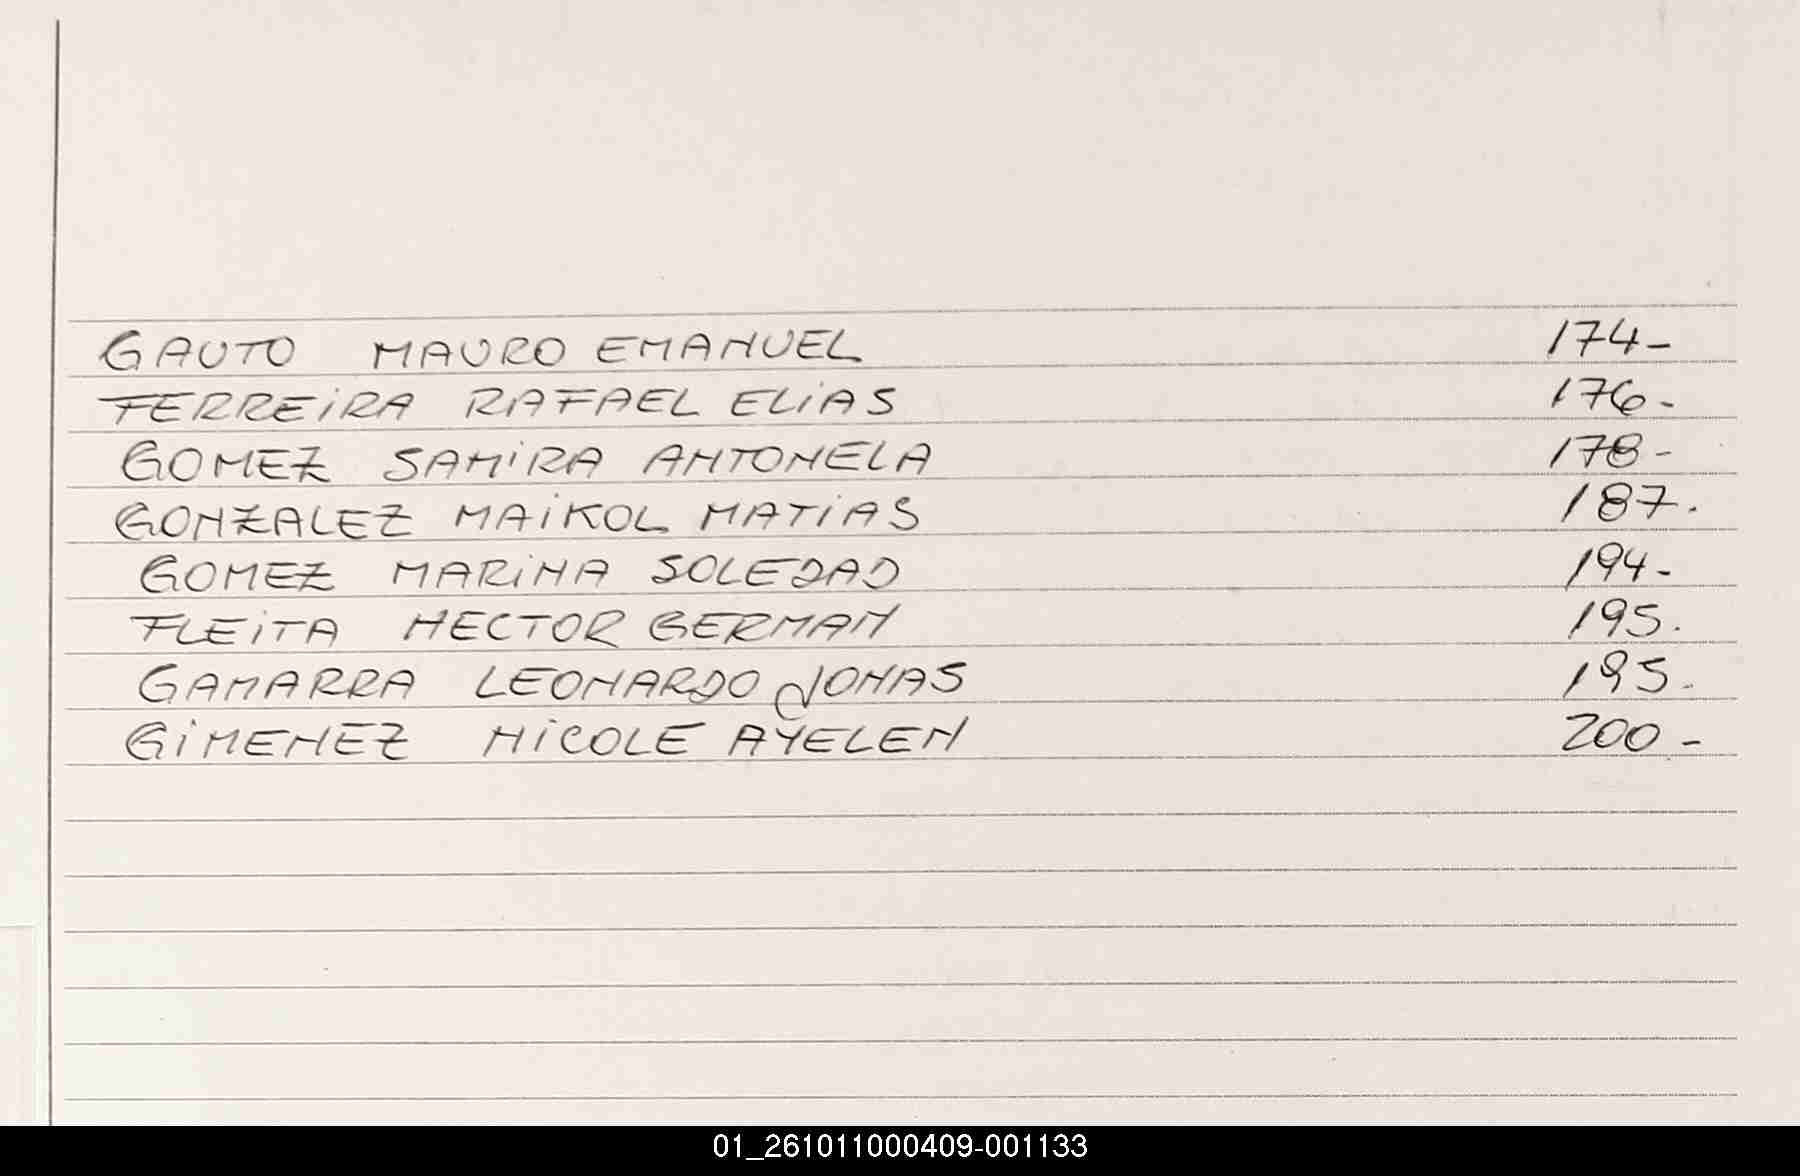 GAUTO MAURO EMANUEL 174-
FERREiRA RAFAEL ELiAS 176-
GOMEZ SAMiRA ANTONELA 178-
GONZALEZ MAiKOL MATiAS 187.
GOMEZ MARiNA SOLEDAD 194-
FLEiTA HECTOR GERMAN 195.
GAMARRA LEONARDO JONAS 195.
GiMENEZ NiCOLE AYELEN 200-
01_261011000409-001133